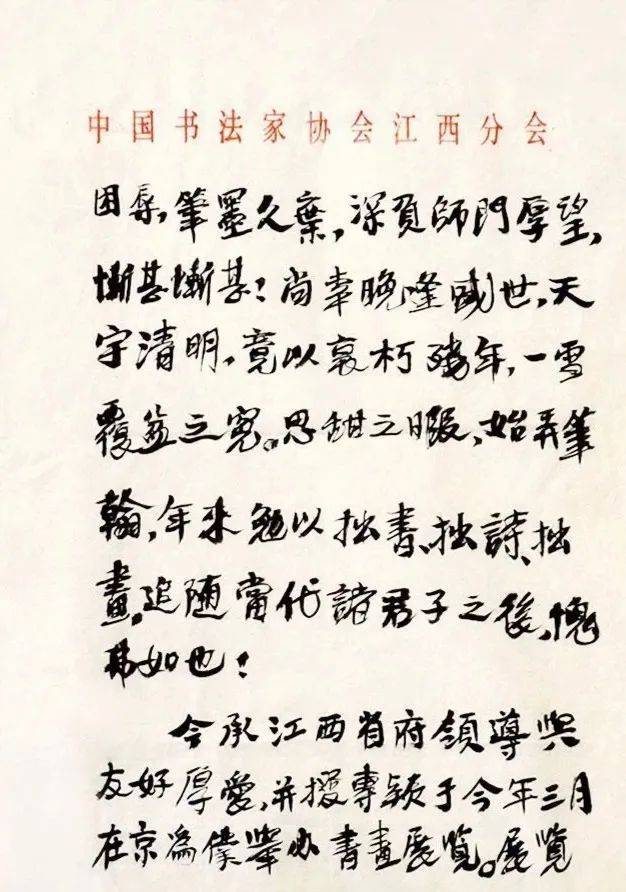 中国书法家协会江西分会
困辱，筆墨久棄，深負師門厚望，
慚甚慚甚！尚幸晚逢盛世，天
宇清明，竟以衰朽殘年，一雪
覆盆之冤。思甜之暇，始弄筆
翰，年来勉以拙書、拙詩、拙
畫，追随當代諸君子之後，愧
弗如也！
今承江西省府領導與
友好厚愛，并撥專款于今年三月
在京為僕舉办書畫展覽。展覽